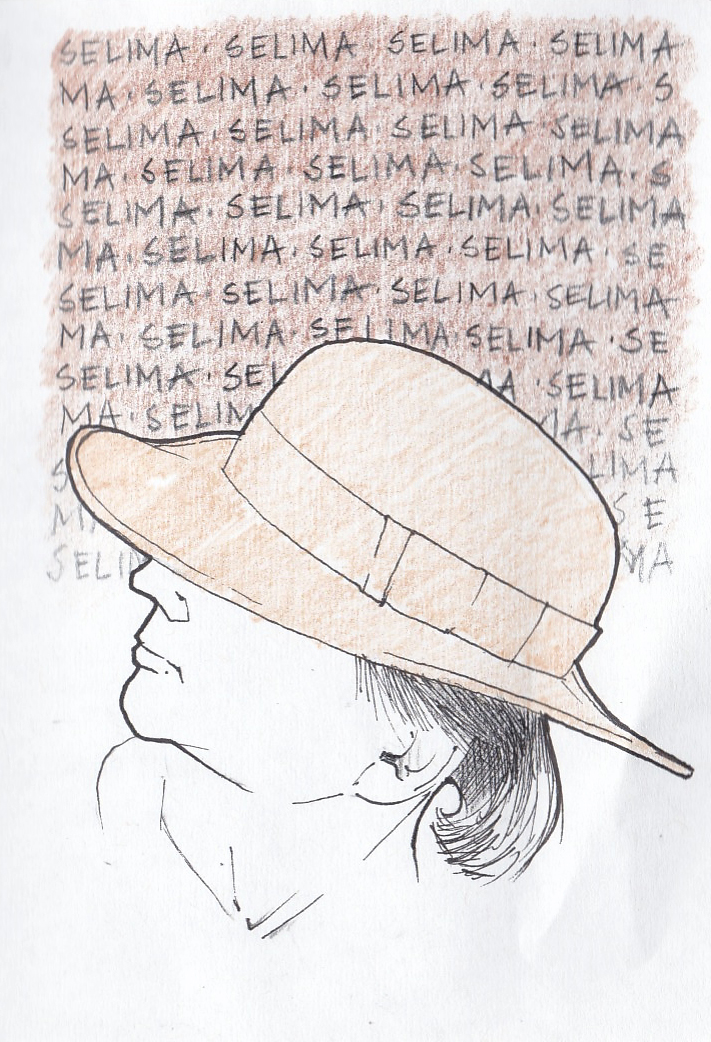 SELIMA · SELIMA SELIMA · SELIMA
MA · SELIMA · SELIMA · SELIMA · S
SELIMA · SELIMA · SELIMA · SELIMA
MA · SELIMA · SELIMA · SELIMA · S
SELIMA · SELIMA · SELIMA · SELIMA
MA · SELIMA · SELIMA · SELIMA · SE
SELIMA · SELIMA · SELIMA · SELIMA
MA · SELIMA · SELIMA · SELIMA · SE
SELIMA · SEL MA · SELIMA
MA · SELIM MA · SE
S LIMA
MA SE
SELIM MA